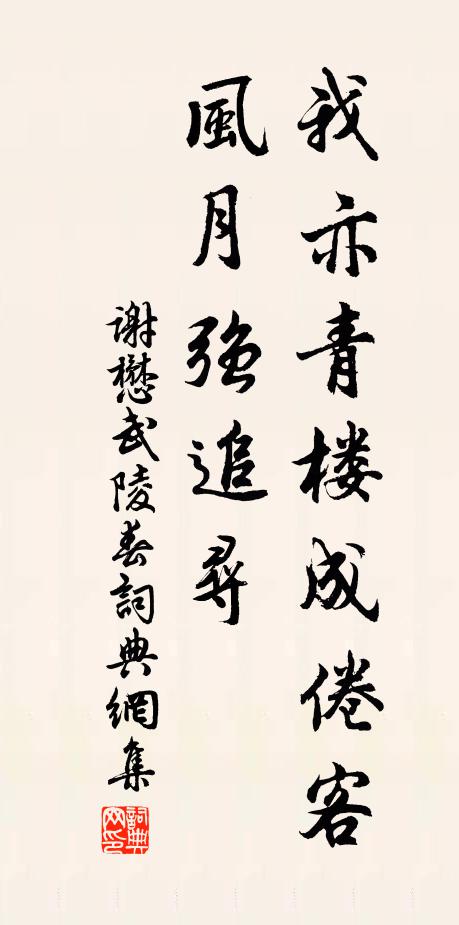 我亦青楼成倦客
風月強追尋
謝懋武陵春詞典網集
詞典網印